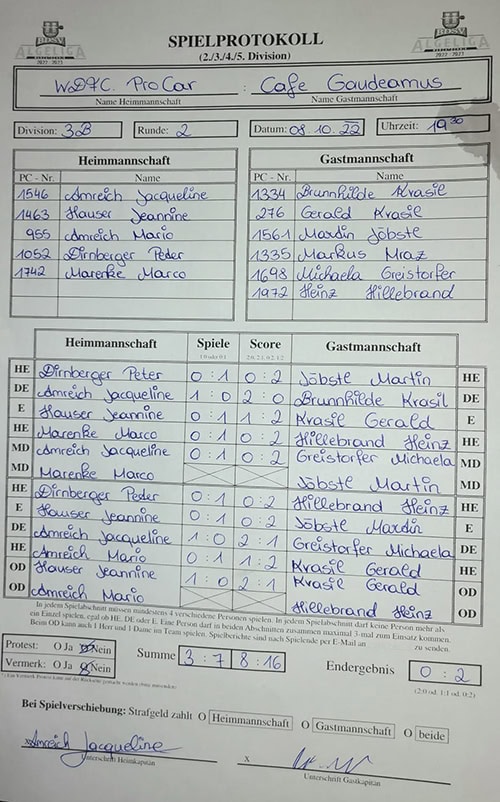 ALGELIGA
2022 - 2023
ALGELIGA
2022 - 2023
SPIELPROTOKOLL
(2./3./4./5. Division)
WDFC. ProCar : Cafe Gaudeamus
Name Heimmannschaft Name Gastmannschaft
Division: 3B Runde: 2 Datum: 08.10.22 Uhrzeit: 19 30
Heimmannschaft Gastmannschaft
PC - Nr. Name PC - Nr. Name
1546 Amreich Jacqueline 1334 Brunnhilde Krasil
1463 Hauser Jeannine 276 Gerald Krasil
955 Amreich Mario 1561 Mardin Jöbste
1052 Dirnberger Peder 1335 Markus Mraz
1742 Marenke Marco 1698 Michaela Greistorfer
1972 Heinz Hillebrand
Heimmannschaft Spiele Score Gastmannschaft
1:0 oder 0:1 2:0, 2:1, 0:2, 1:2
HE Dirnberger Peter 0 : 1 0 : 2 Jöbste Martin HE
DE Amreich Jacqueline 1 : 0 2 : 0 Brunnhilde Krasil DE
E Hauser Jeannine 0 : 1 1 : 2 Krasil Gerald E
HE Marenke Marco 0 : 1 0 : 2 Hillebrand Heinz HE
MD Amreich Jacqueline 0 : 1 0 : 2 Greistorfer Michaela MD
MD Marenke Marco Jöbste Martin MD
HE Dirnberger Peder 0 : 1 0 : 2 Hillebrand Heinz HE
E Hauser Jeannine 0 : 1 0 : 2 Jöbste Mardin E
DE Amreich Jacqueline 1 : 0 2 : 1 Greistorfer Michaela DE
HE Amreich Mario 0 : 1 1 : 2 Krasil Gerald HE
OD Hauser Jeannine 1 : 0 2 : 1 Krasil Gerald OD
OD Amreich Mario Hillebrand Heinz OD
In jedem Spielabschnitt müssen mindestens 4 verschiedene Personen spielen. In jedem Spielabschnitt darf keine Person mehr als
ein Einzel spielen, egal ob HE, DE oder E. Eine Person darf in beiden Abschnitten zusammen maximal 3-mal zum Einsatz kommen.
Beim OD kann auch 1 Herr und 1 Dame im Team spielen. Spielberichte sind nach Spielende per E-Mail an zu senden.
Protest: O Ja O Nein Summe 3 : 7 8 : 16 Endergebnis 0 : 2
Vermerk: O Ja O Nein
(2:0 od. 1:1 od. 0:2)
Bei Spielverschiebung: Strafgeld zahlt O Heimmannschaft O Gastmannschaft O beide
x Amreich Jacqueline x
Unterschrift Heimkapitän Unterschrift Gastkapitän